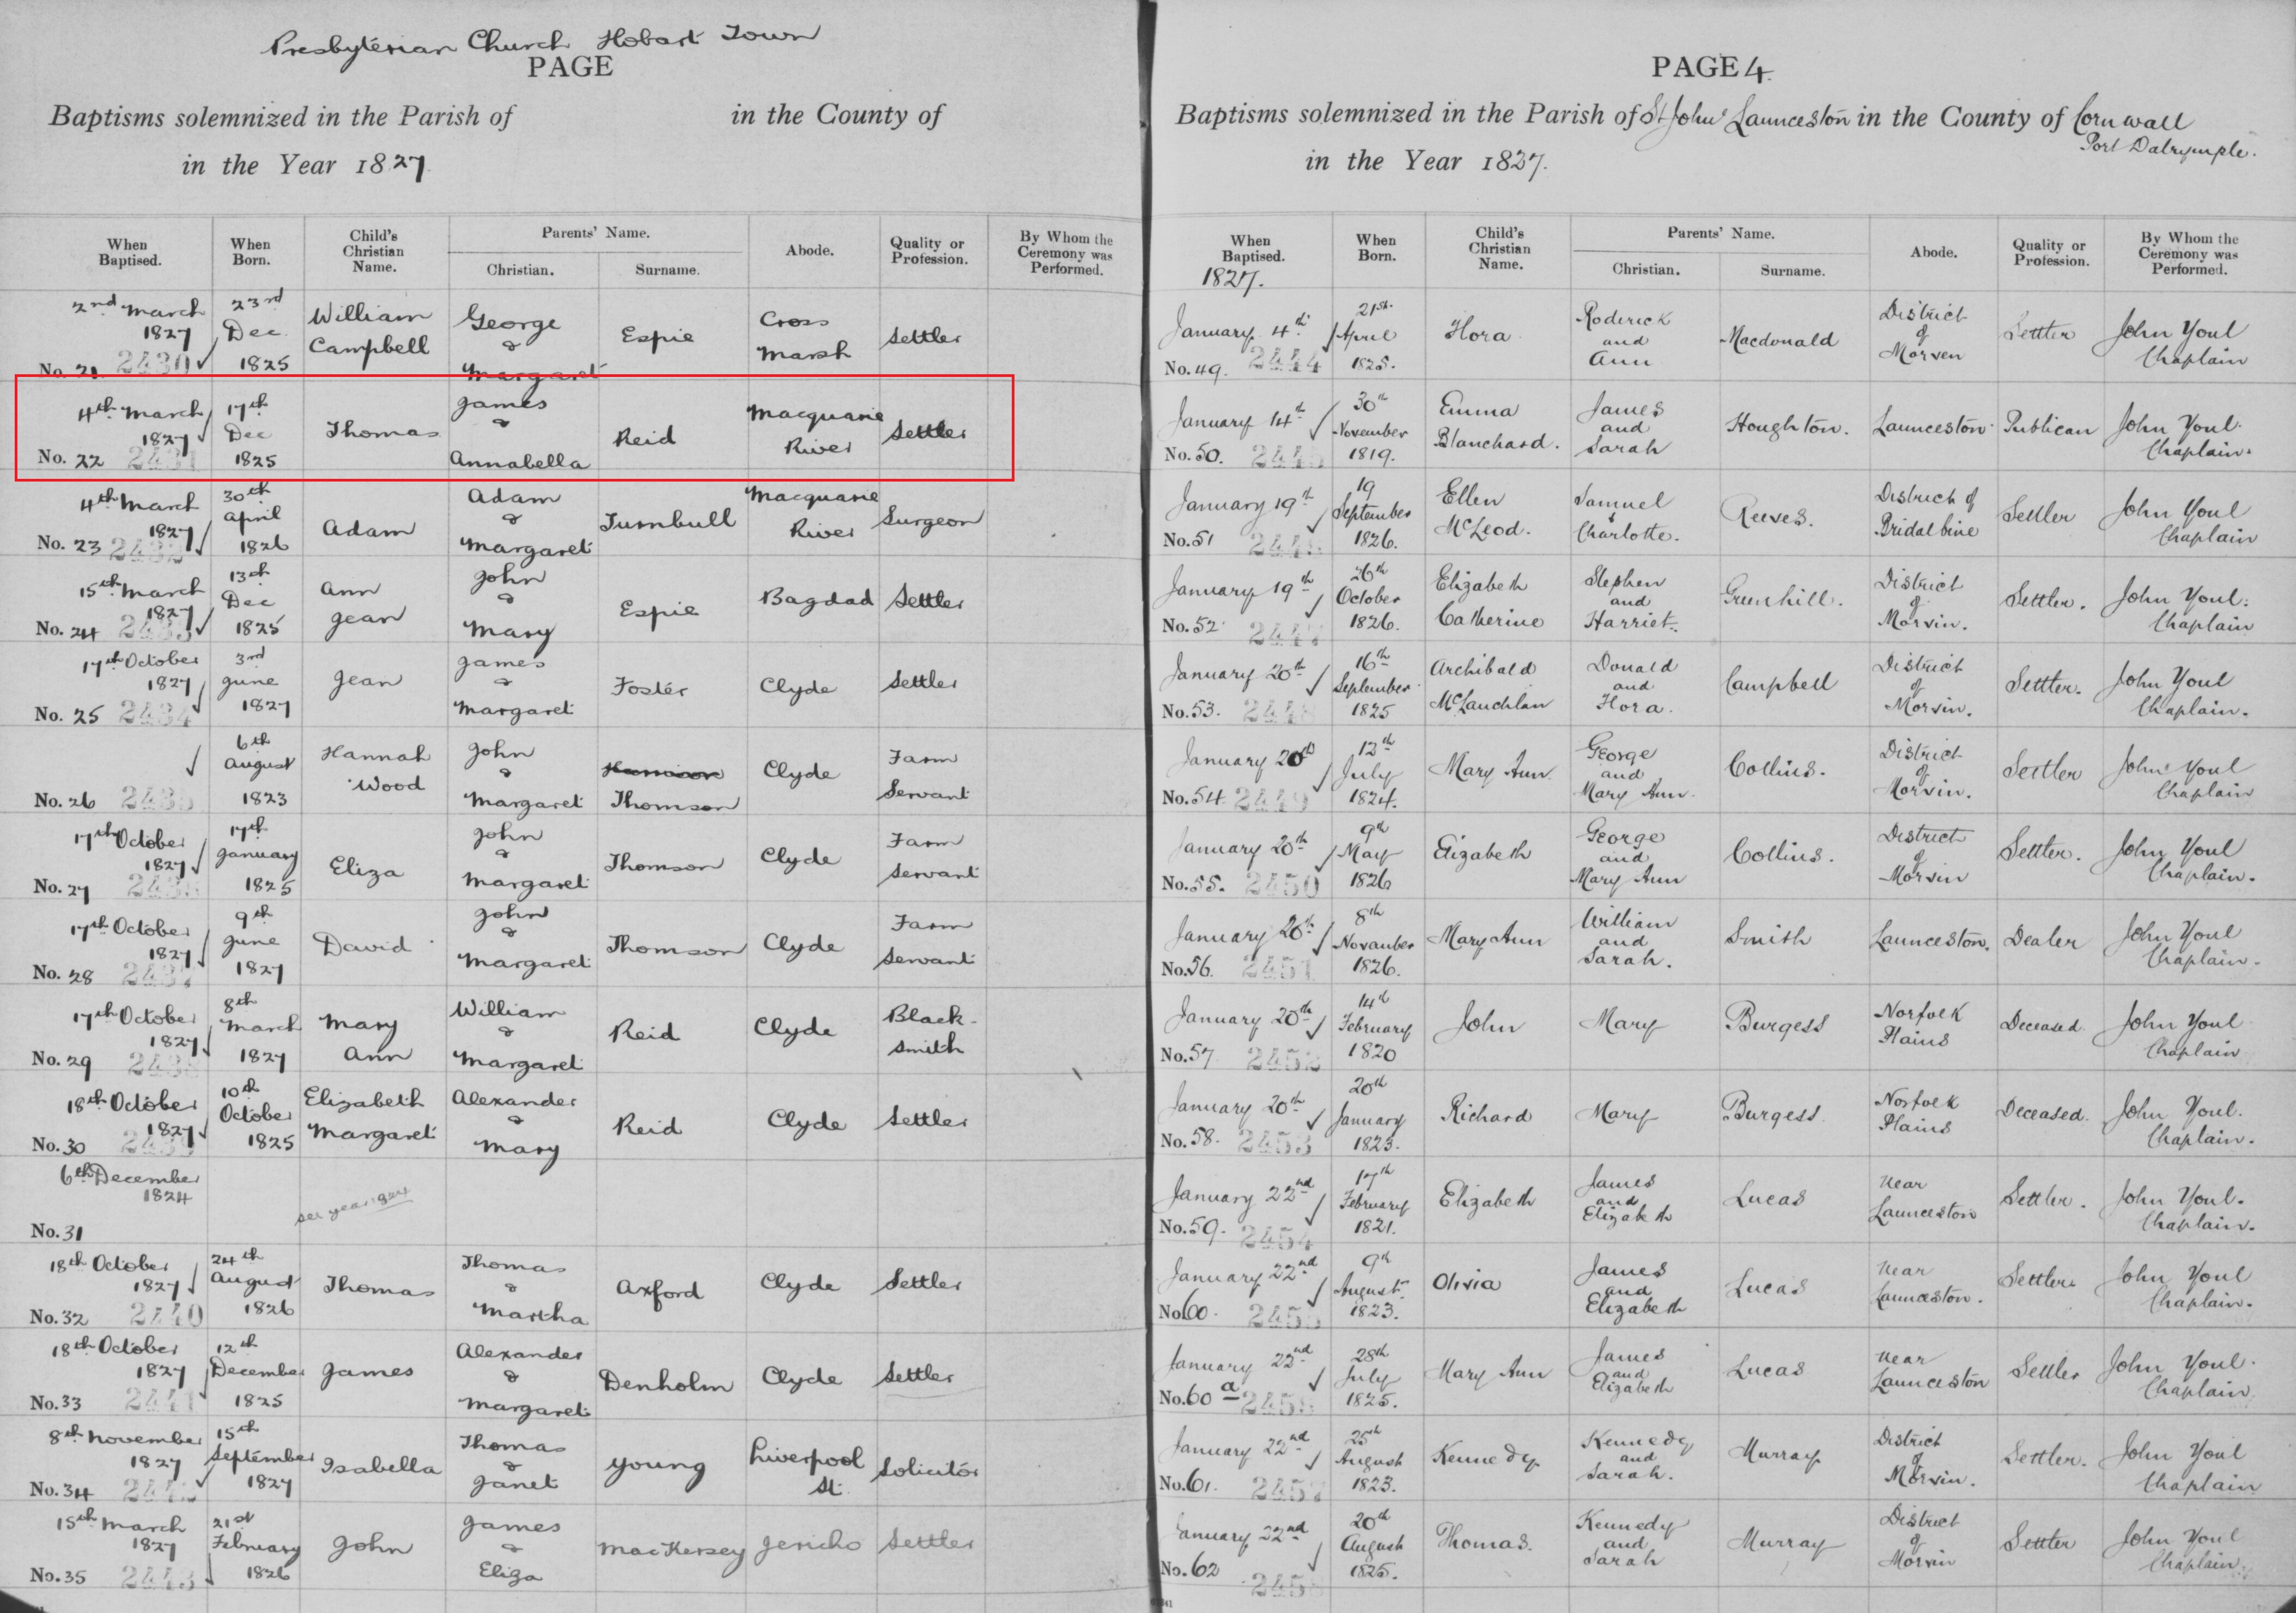 Presbyterian Church Hobart Town
PAGE
Baptisms solemnized in the Parish of in the County of
in the Year 1827
When Baptised. When Born. Child's Christian Name. Parents' Name. Christian. Surname. Abode. Quality or Profession. By Whom the Ceremony was Performed.
No. 21 2430 2nd March 1827 23rd Dec. 1825 William Campbell George & Margaret Espie Cross Marsh Settler
No. 22 2431 4th March 1827 17th Dec 1825 Thomas James & Annabella Reid Macquarie River Settler
No. 23 2432 4th March 1827 30th April 1826 Adam Adam & Margaret Turnbull Macquarie River Surgeon
No. 24 2433 15th March 1827 13th Dec 1825 Ann Jean John & Mary Espie Bagdad Settler
No. 25 2434 17th October 1827 3rd June 1827 Jean James & Margaret Foster Clyde Settler
No. 26 2435 6th August 1823 Hannah Wood John & Margaret Thomson Clyde Farm Servant
No. 27 2436 17th October 1827 17th January 1825 Eliza John & Margaret Thomson Clyde Farm Servant
No. 28 2437 17th October 1827 9th June 1827 David John & Margaret Thomson Clyde Farm Servant
No. 29 2438 17th October 1827 8th March 1827 Mary Ann William & Margaret Reid Clyde Black-smith
No. 30 2439 18th October 1827 10th October 1825 Elizabeth Margaret Alexander & Mary Reid Clyde Settler
No. 31 6th December 1824 see year 1824
No. 32 2440 18th October 1827 24th August 1826 Thomas Thomas & Martha Axford Clyde Settler
No. 33 2441 18th October 1827 12th December 1825 James Alexander & Margaret Denholm Clyde Settler
No. 34 2442 8th November 1827 15th September 1827 Isabella Thomas & Janet Young Liverpool St. Solicitor
No. 35 2443 15th March 1827 21st February 1826 John James & Eliza MacKersey Jericho Settler
PAGE 4.
Baptisms solemnized in the Parish of St John's Launceston in the County of Cornwall
Port Dalrymple.
in the Year 1827.
When Baptised. When Born. Child's Christian Name. Parents' Name. Christian. Surname. Abode. Quality or Profession. By Whom the Ceremony was Performed.
1827.
No. 49. 2444 January 4th 21st April 1825. Flora Roderick and Ann Macdonald District of Morven Settler John Youl Chaplain
No. 50. 2445 January 14th 30th November 1819. Emma Blanchard. James and Sarah Houghton. Launceston Publican John Youl Chaplain.
No. 51 2446 January 19th 19 September 1826. Ellen McLeod. Samuel & Charlotte. Reeves. District of Bridalbine Settler John Youl Chaplain
No. 52 2447 January 19th 26th October 1826. Elizabeth Catherine Stephen and Harriet. Greenhill. District of Morvin. Settler. John Youl. Chaplain
No. 53. 2448 January 20th 16th September 1825 Archibald McLauchlan Donald and Flora. Campbell District of Morvin. Settler. John Youl Chaplain.
No. 54. 2449 January 20th 12th July 1824. Mary Ann. George and Mary Ann. Collins. District of Morvin. Settler John Youl Chaplain
No. 55. 2450 January 20th 9th May 1826 Elizabeth George and Mary Ann Collins. District of Morvin Settler. John Youl Chaplain.
No. 56. 2451 January 20th 8th November 1826. Mary Ann William and Sarah. Smith Launceston. Dealer John Youl Chaplain.
No. 57. 2452 January 20th 14th February 1820 John Mary Burgess Norfolk Plains Deceased John Youl Chaplain
No. 58. 2453 January 20th 20th January 1823. Richard Mary Burgess. Norfolk Plains Deceased. John Youl. Chaplain.
No. 59. 2454 January 22nd 17th February 1821. Elizabeth James and Elizabeth Lucas near Launceston Settler. John Youl. Chaplain.
No. 60. 2455 January 22nd 9th August 1823. Olivia James and Elizabeth Lucas near Launceston. Settler John Youl Chaplain.
No. 60 a 2456 January 22nd 28th July 1825. Mary Ann James and Elizabeth Lucas near Launceston Settler John Youl. Chaplain.
No. 61. 2457 January 22nd 25th August 1823. Kennedy Kennedy and Sarah. Murray District of Morvin. Settler. John Youl Chaplain
No. 62 2458 January 22nd 20th August 1825. Thomas. Kennedy and Sarah Murray District of Morvin Settler John Youl Chaplain.